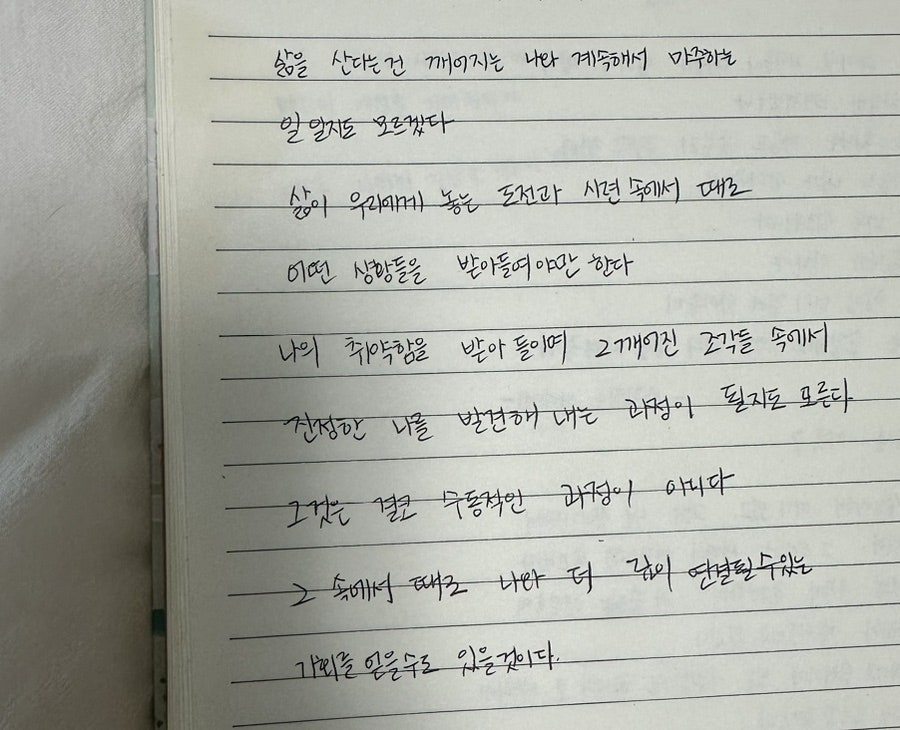 삶을 산다는건 깨어지는 나와 계속해서 마주하는
일 일지도 모르겠다
삶이 우리에게 놓는 도전과 시련 속에서 때로
어떤 상황들을 받아들여야만 한다
나의 취약함을 받아들이며 그 깨어진 조각들 속에서
진정한 나를 발견해 내는 과정이 될지도 모른다
그것은 결코 수동적인 과정이 아니다
그 속에서 때로 나와 더 깊이 연결될 수 있는
기회를 얻을수도 있을것이다.